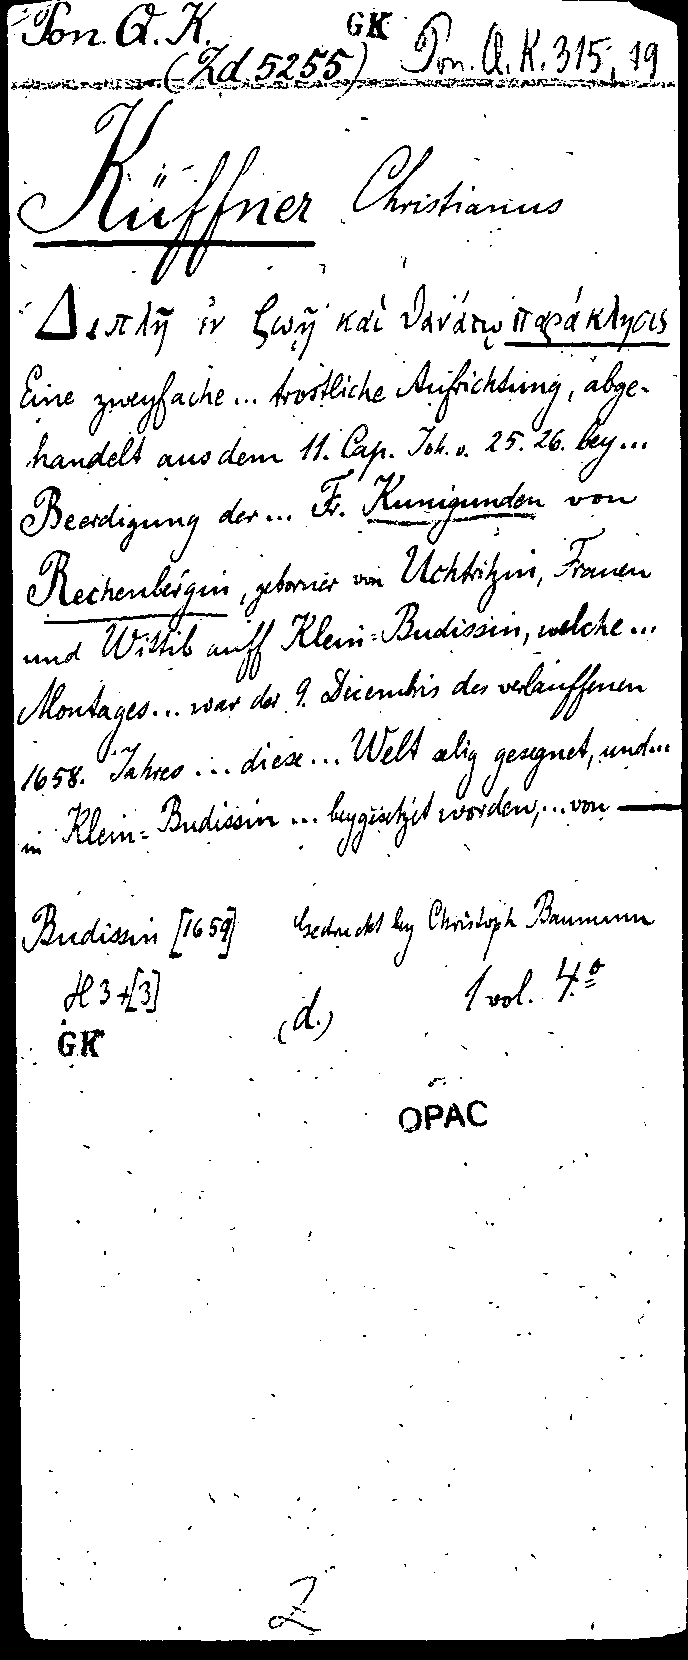 Pon. Q. K. GK
(Zd 5255) Pon. Q. K. 315, 19
Küffner Christianus
Διπλῆ ἐν ζωῇ καὶ θανάτῳ παράκλησις
Eine zweyfache... trostliche Aufrichtung, abge-
handelt aus dem 11. Cap. Joh. v. 25. 26. bey...
Beerdigung der... Fr. Kunigunden von
Rechenbergin, geborner von Uchtritzin, Frauen
und Wittib auff Klein-Budissin, welche...
Montages... war der 9. Decembris des verlauffenen
1658. Jahres... diese... Welt selig gesegnet, und...
in Klein-Budissin... beygesetzet worden,... von —
Budissin [1659] Gedruckt by Christoph Baumann
H 3 +[3] 1 vol. 4.º
GK (d.)
OPAC
Z